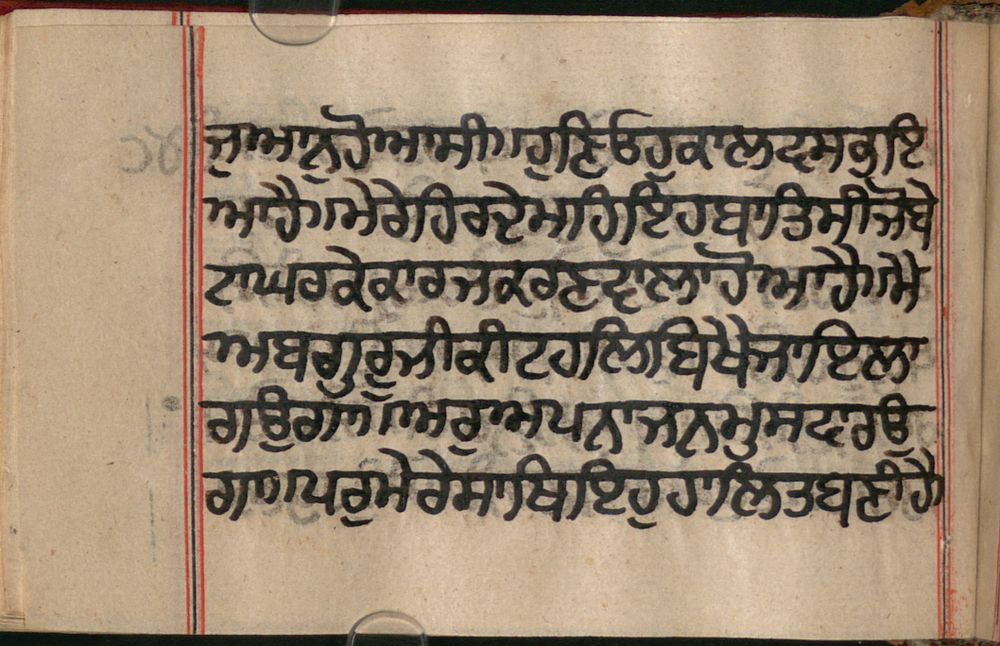 ਜੁਆਨੁਹੋਆਸੀ॥ਹੁਣਿਓਹੁਕਾਲਵਸਭੁਇ
ਆਹੈ॥ਮੇਰੇਹਿਰਦੇਮਾਹਿਇਹਬਾਤਿਸੀਜੋਬੇ
ਟਾਘਰਕੇਕਾਰਜਕਰਣਵਾਲਾਹੋਆਹੈ॥ਮੈ
ਅਬਗੁਰੂਜੀਕੀਟਹਲਿਬਿਖੈਜਾਇਲਾ
ਗਉਗਾ॥ਅਰੁਅਪਨਾਜਨਮੁਸਵਾਰਉ
ਗਾ॥ਪਰੁਮੇਰੇਸਾਥਿਇਹੁਹਾਲਿਤਬਣੀਹੈ